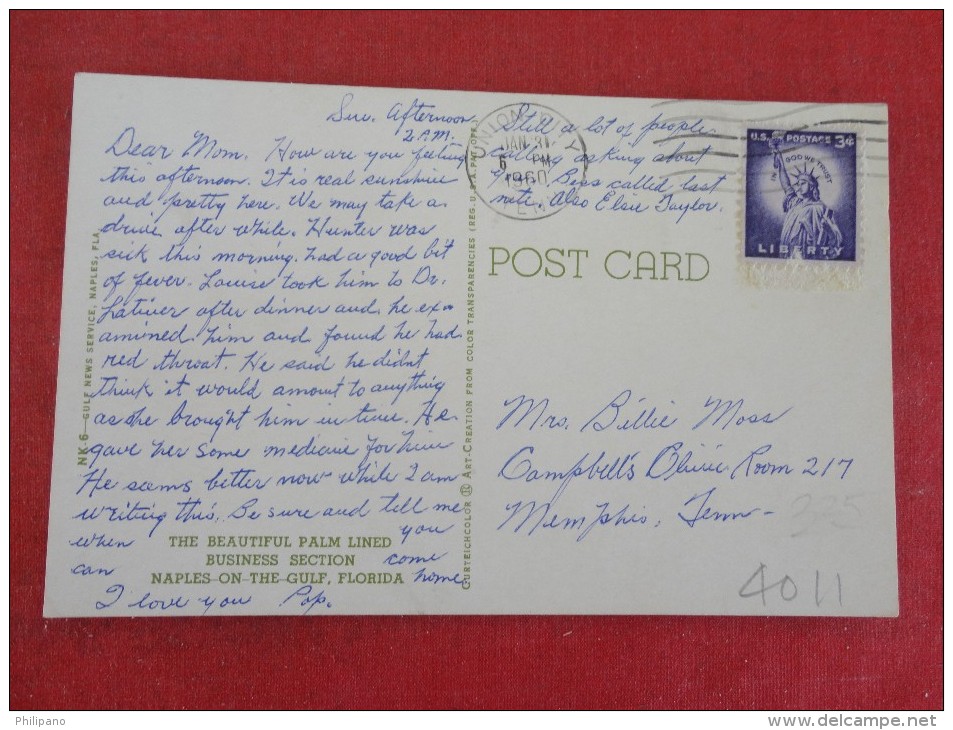 Sun. Afternoon
2 P.M.
Dear Mom. How are you feeling
this afternoon. It is real sunshine
and pretty here. We may take a
drive after while. Hunter was
sick this morning. had a good bit
of fever. Louise took him to Dr.
Latiner after dinner and he ex-
amined him and found he had
red throat. He said he didnt
think it would amout to anything
as she brought him in time. He
gave her some medicine for him
He seems better now while I am
writing this. Be sure and tell me
when you
can come
home.
I love you Pop.
Still a lot of people
calling asking about
you. Bess called last
nite. Also Elsie Taylor.
UNION CITY
JAN 31
6 PM
1960
TENN
U.S. POSTAGE 3¢
IN GOD WE TRUST
LIBERTY
POST CARD
Mrs. Billie Moss
Campbell's Clinic Room 217
Memphis, Tenn-
4011
THE BEAUTIFUL PALM LINED
BUSINESS SECTION
NAPLES-ON-THE-GULF, FLORIDA
NK-6—GULF NEWS SERVICE, NAPLES, FLA.
CURTEICHCOLOR ® ART-CREATION FROM COLOR TRANSPARENCIES (REG. U.S.A. PAT. OFF.)
Philipano
http://www.delcampe.net